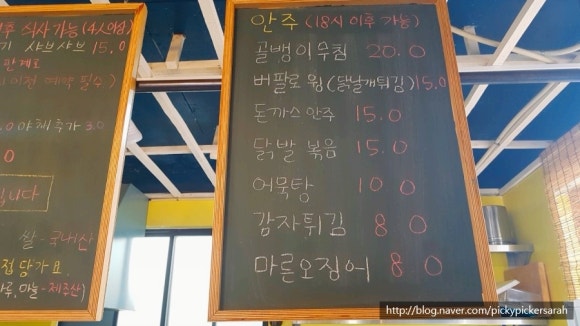 후 식사 가능 (4人이상)
기 샤브샤브 15.0
판계로
이전 예약 필수)
.0 야채추가 3.0
0
입니다
쌀-국내산
접당가요
루, 마늘-제주산)
안주 (18시 이후 가능)
골뱅이무침 20.0
버팔로 윙 (닭날개튀김) 15.0
돈까스 안주 15.0
닭발 볶음 15.0
어묵탕 10.0
감자튀김 8.0
마른오징어 8.0
http://blog.naver.com/pickypickersarah